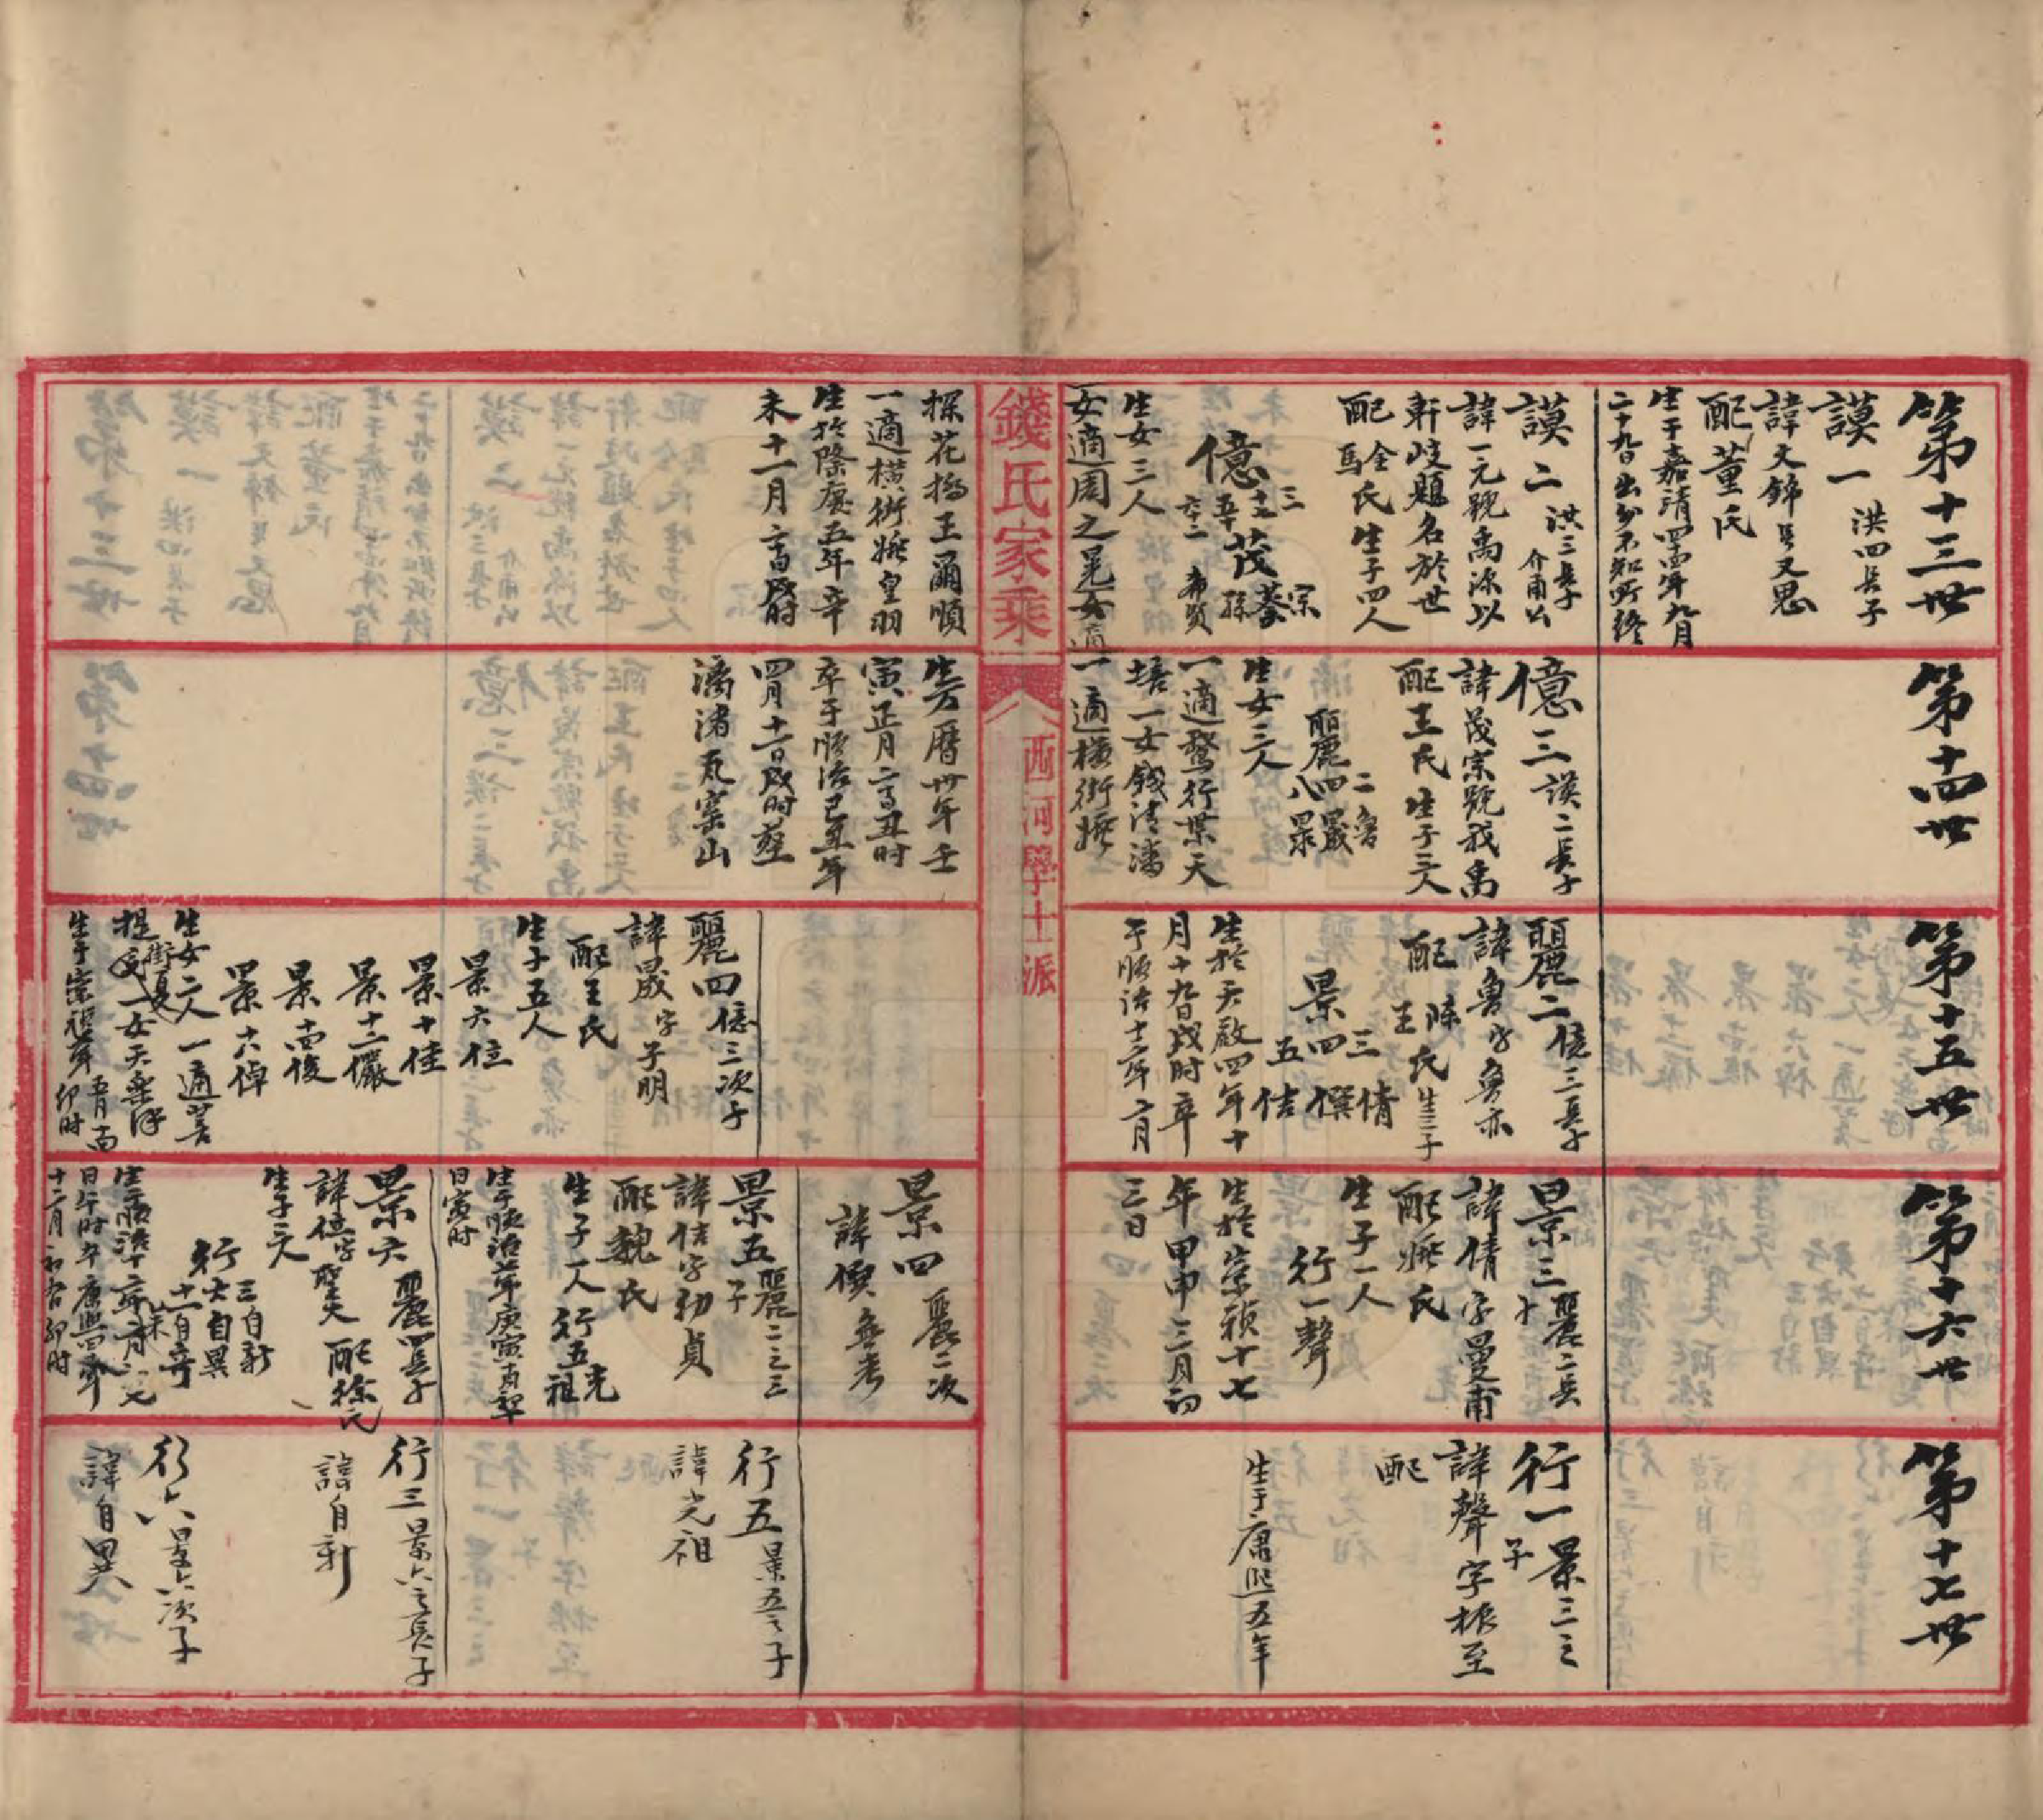 第十三世
謨一 洪四長子
諱文錦 號又思
配董氏
生于嘉靖四十四年九月
二十九日出外不知所終
謨二 洪三長子 介甫公
諱一元號禹源以
軒岐題名於世
配金氏 馬氏 生子四人
億 三茂宗
生女三人
女適周之冕女適
探花橋王爾順
一適橫街姚皇羽
生於隆慶五年辛
未十一月 戌時
第十四世
億三 謨二長子
諱茂宗號我禹
配王氏 生子三人
麗 二魯 四晟 八
生女三人
一適 行葉天
培一女錢清潘
一適橫街姚
生萬曆卅年壬
寅正月 丑時
卒于順治己丑年
四月十一日戌時葬
漓渚瓦窯山
第十五世
麗二 億三長子
諱魯字魯亦
配陳 王氏 生三子
景 三倩 四僎 五佶
生於天啟四年十
月十九日戌時卒
于順治十二年 月
麗四 億三次子
諱晟字子明
配王氏
生子五人
景六位
景十佳
景十二儼
景十四俊
景十六倬
生女二人一適
生于崇禎 年 五月 卯時
第十六世
景三 麗二長子
諱倩字曼甫
配姚氏
生子一人
行一聲
生於崇禎十七
年甲申三月初
三日
景四 麗二次
諱僎無考
景五 麗二之三子
諱佶字初貞
配魏氏
生子一人 行五光祖
生于順治 年庚寅
日寅時
景六 麗四長子
諱位字聖火 配徐氏
生子三人
行 三自新 六自異 十一自奇
日午時卒康熙四 年
十二月初 日卯時
第十七世
行一 景三之子
諱聲字振至
配
生于康熙五年
行五 景五之子
諱光祖
行三 景六之長子
諱自新
行六 景六次子
諱自異
錢氏家乘
八 西河學士派